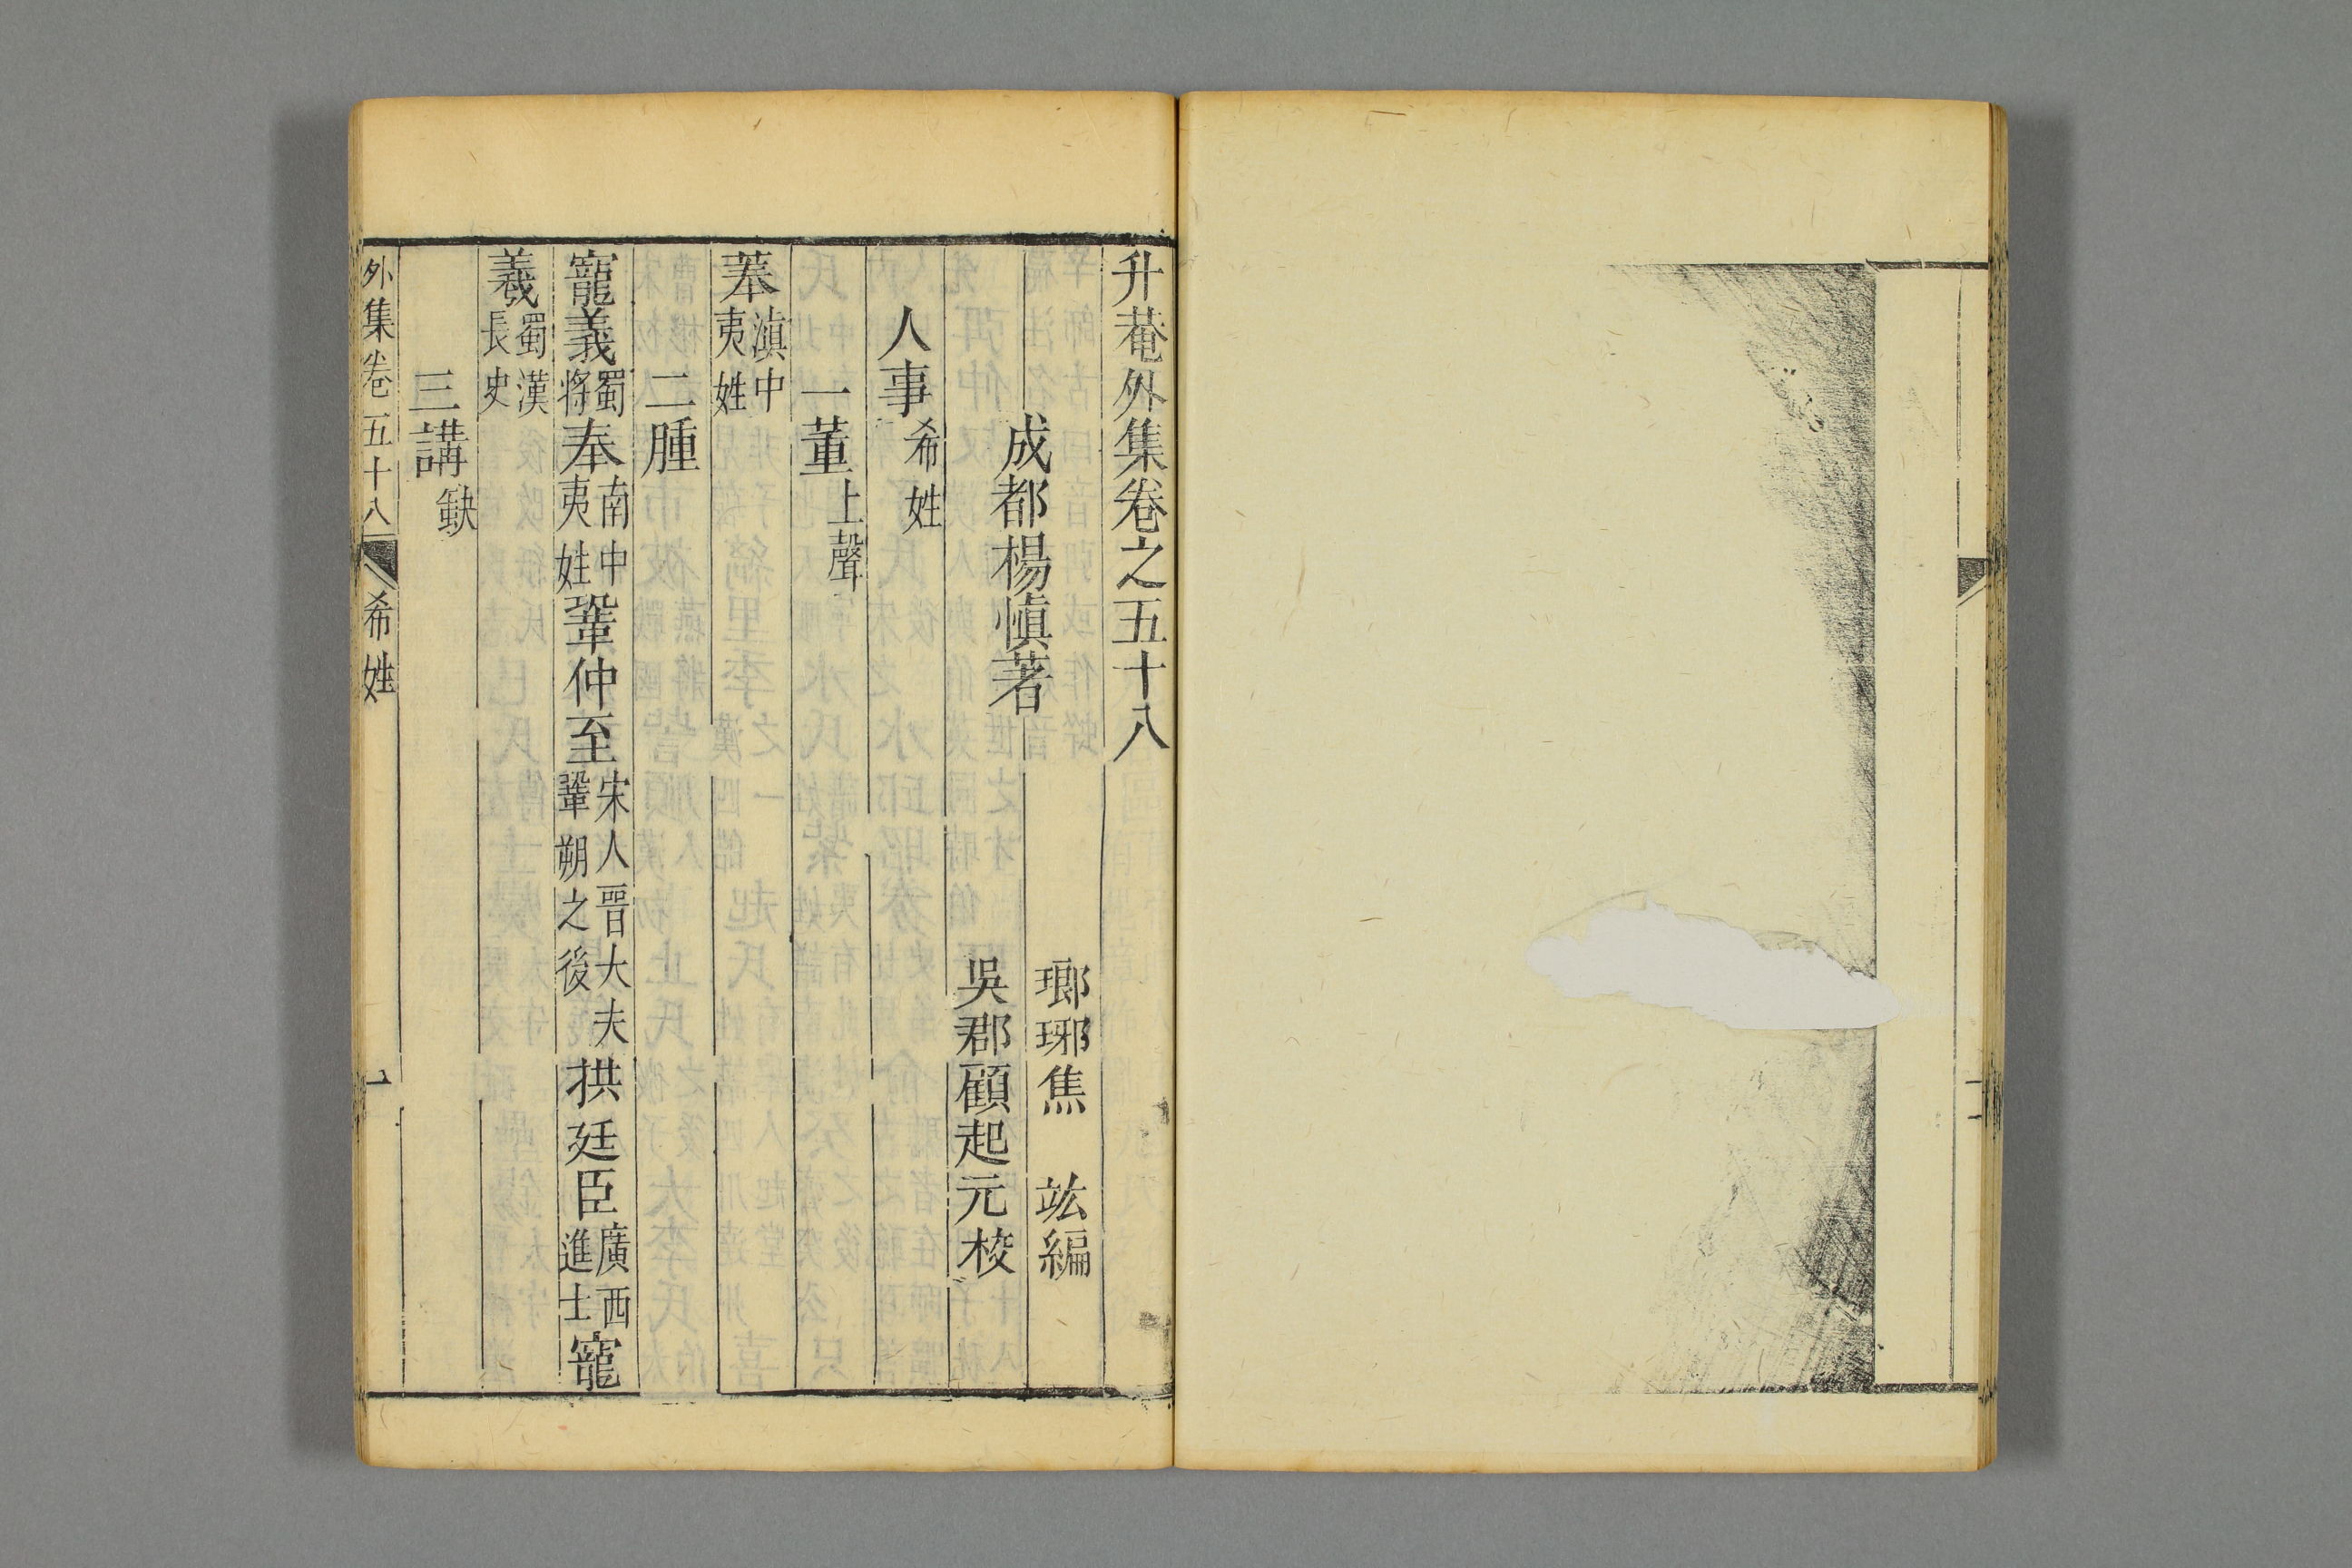 升菴外集卷之五十八
瑯琊焦　竑編
成都楊慎著
吳郡顧起元校
人事希姓
一董上聲
菶滇中夷姓
二腫
寵義蜀將奉南中夷姓鞏仲至宋人晉大夫鞏朔之後拱廷臣廣西進士寵
羲蜀漢長史
三講缺
外集卷五十八　希姓　一